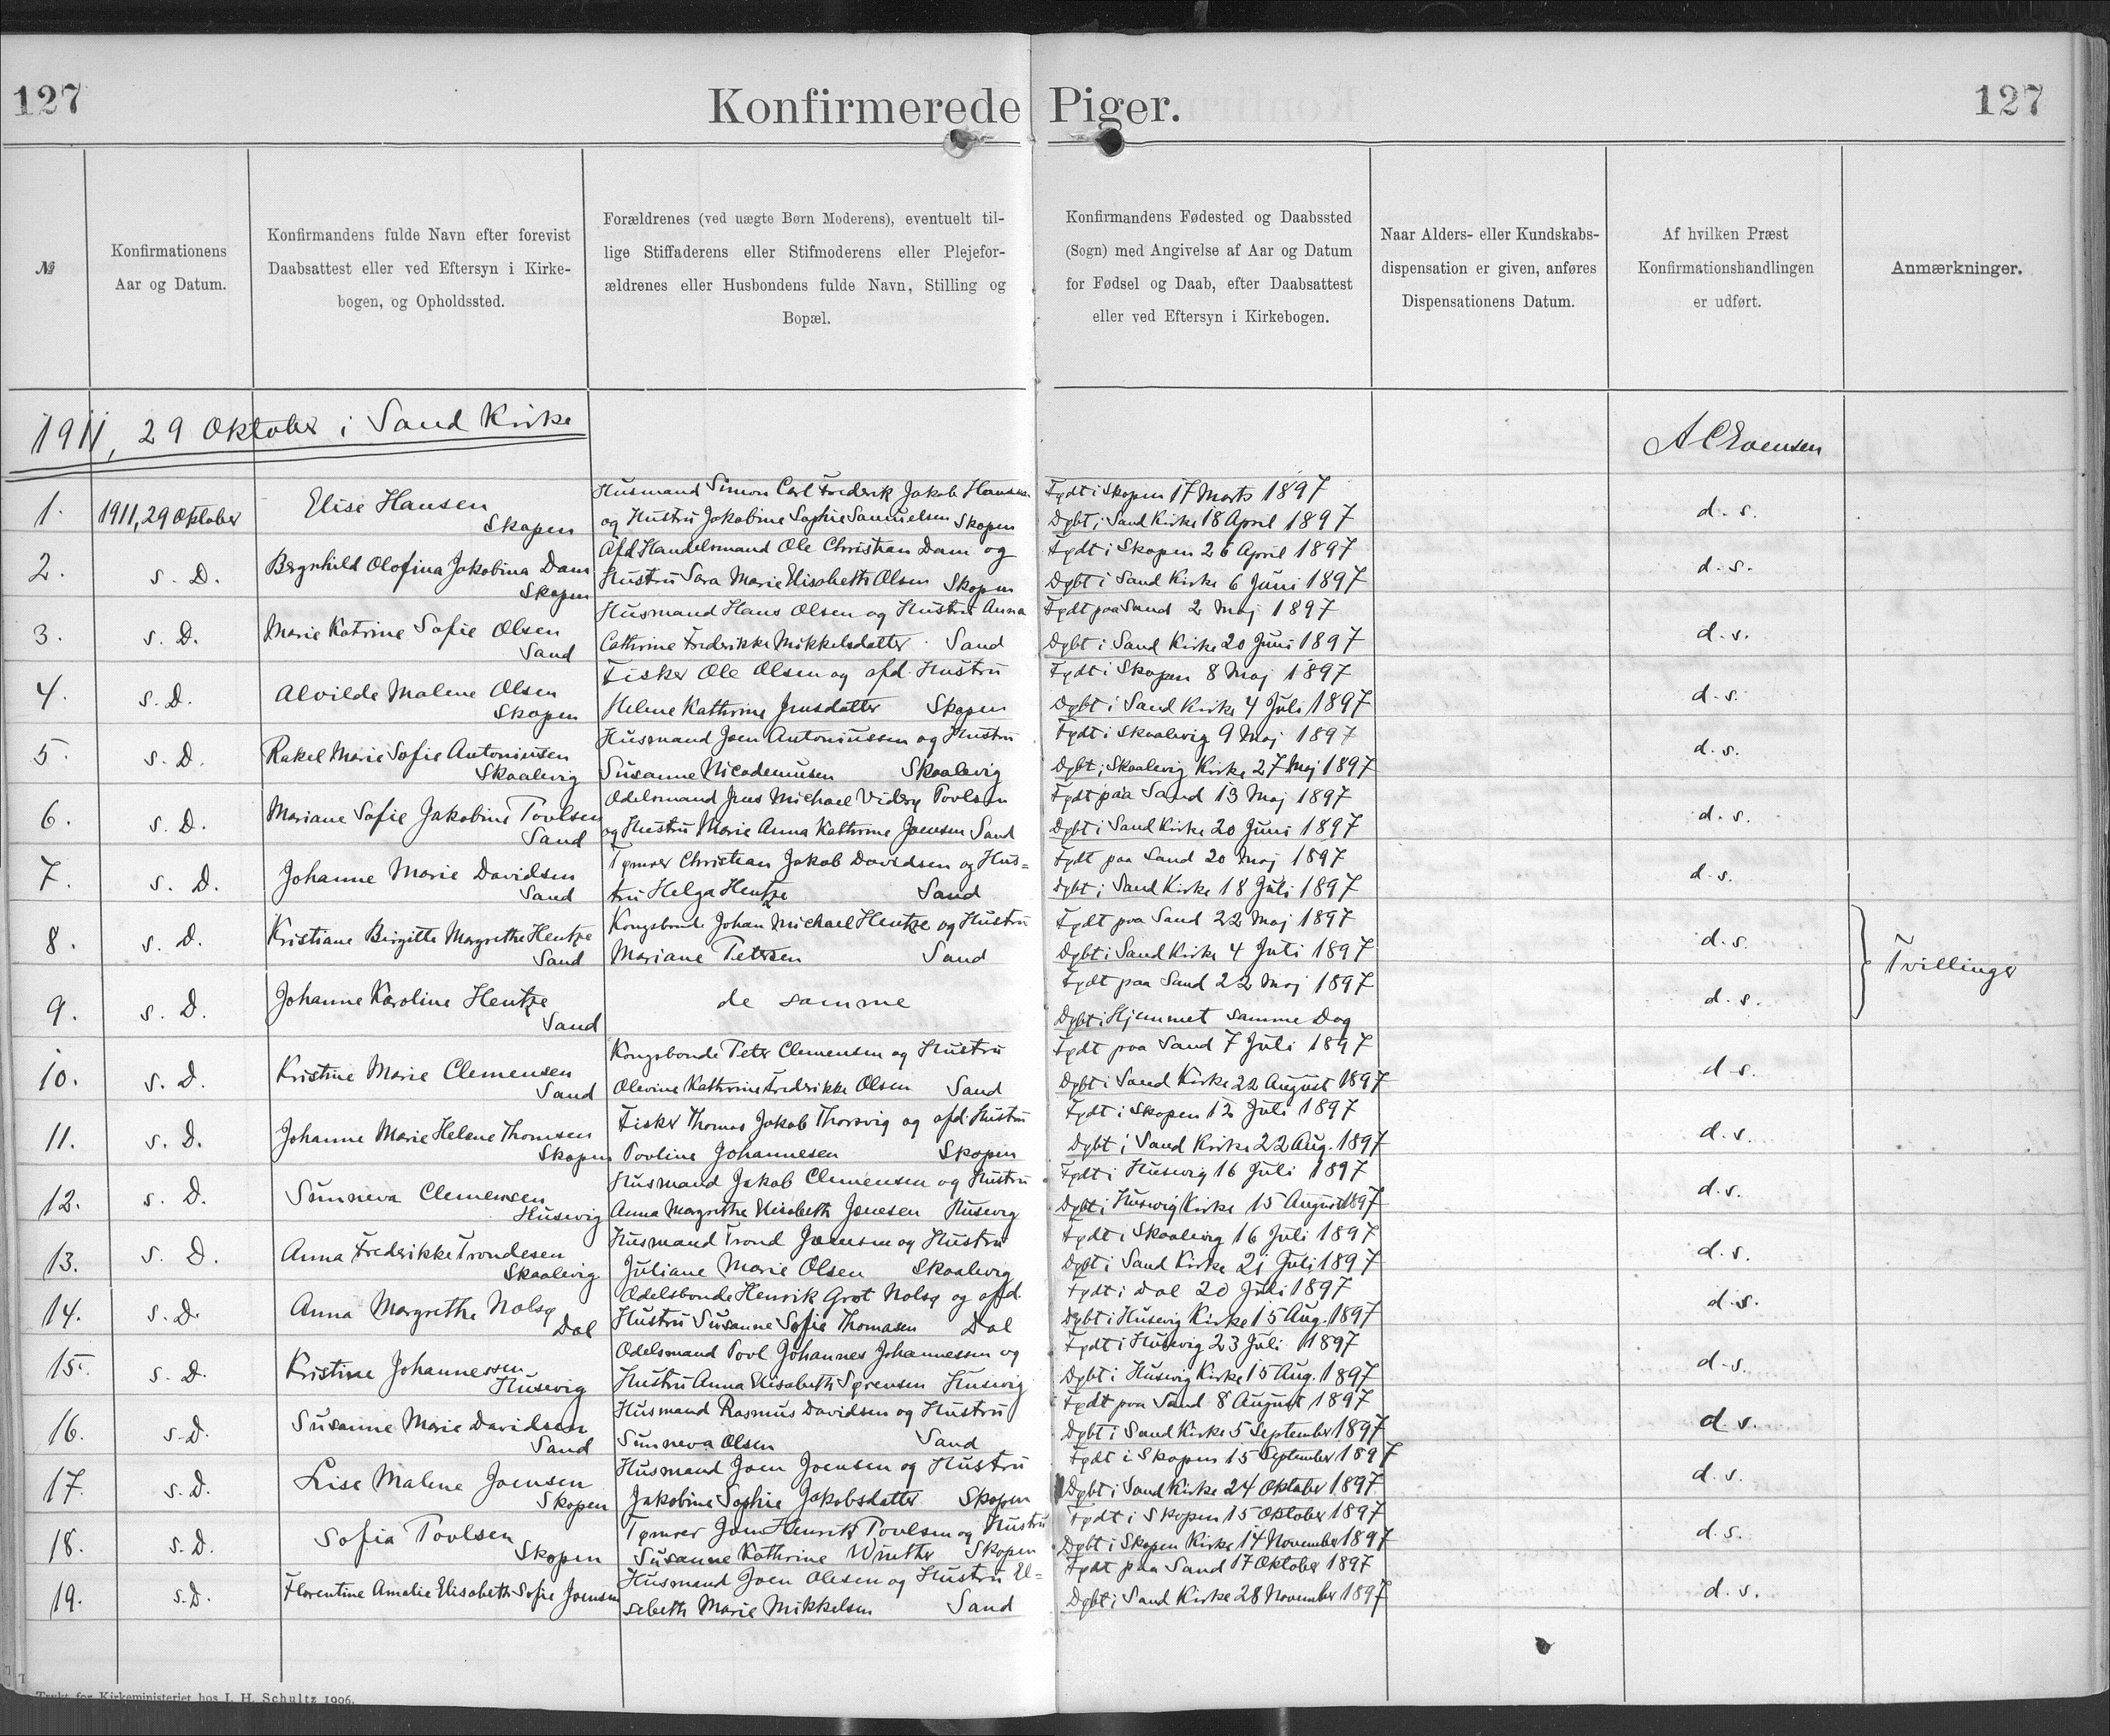 127
Konfirmerede Piger.
127
№
Konfirmationens
Aar og Datum.
Konfirmandens fulde Navn efter forevist
Daabsattest eller ved Eftersyn i Kirke-
bogen, og Opholdssted.
Forældrenes (ved uægte Børn Moderens), eventuelt til-
lige Stiffaderens eller Stifmoderens eller Plejefor-
ældrenes eller Husbondens fulde Navn, Stilling og
Bopæl.
Konfirmandens Fødested og Daabssted
(Sogn) med Angivelse af Aar og Datum
for Fødsel og Daab, efter Daabsattest
eller ved Eftersyn i Kirkebogen.
Naar Alders- eller Kundskabs-
dispensation er given, anføres
Dispensationens Datum.
Af hvilken Præst
Konfirmationshandlingen
er udført.
Anmærkninger.
1911, 29 Oktober i Sand Kirke
A C Evensen
1. 1911, 29 Oktober Elise Hansen Skopen
Husmand Simon Carl Frederik Jakob Hansen
og Hustru Jakobine Sophie Samuelsen Skopen
Født i Skopen 17 Marts 1897
Døbt i Sand Kirke 18 April 1897
d. s.
2. s. D. Bergnhild Olofina Jakobina Dam Skopen
Afd Handelsmand Ole Christian Dam og
Hustru Sara Marie Elisabeth Olsen Skopen
Født i Skopen 26 April 1897
Døbt i Sand Kirke 6 Juni 1897
d. s.
3. s. D. Marie Katrine Sofie Olsen Sand
Husmand Hans Olsen og Hustru Anna
Cathrine Frederikke Mikkelsdatter Sand
Født paa Sand 2 Maj 1897
Døbt i Sand Kirke 20 Juni 1897
d. s.
4. s. D. Alvilde Malene Olsen Skopen
Fisker Ole Olsen og afd. Hustru
Helene Kathrine Jensdatter Skopen
Født i Skopen 8 Maj 1897
Døbt i Sand Kirke 4 Juli 1897
d. s.
5. s. D. Rakel Marie Sofie Antoniusen Skaalevig
Husmand Joen Antoniussen og Hustru
Susanne Nicodemusen Skaalevig
Født i Skaalevig 9 Maj 1897
Døbt i Skaalevig Kirke 27 Maj 1897
d. s.
6. s. D. Mariane Sofie Jakobine Poulsen Sand
Odelsmand Jens Michael Viderø Poulsen
og Hustru Marie Anna Kathrine Joensen Sand
Født paa Sand 13 Maj 1897
Døbt i Sand Kirke 20 Juni 1897
d. s.
7. s. D. Johanne Marie Davidsen Sand
Tømrer Christian Jakob Davidsen og Hus=
tru Helga Hentze Sand
Født paa Sand 20 Maj 1897
Døbt i Sand Kirke 18 Juli 1897
d. s.
8. s. D. Kristiane Birgitte Margrethe Hentze Sand
Kongsbonde Johan Michael Hentze og Hustru
Mariane Petersen Sand
Født paa Sand 22 Maj 1897
Døbt i Sand Kirke 4 Juli 1897
d. s.
Tvillinger
9. s. D. Johanne Karoline Hentze Sand
de samme
Født paa Sand 22 Maj 1897
Døbt i Hjemmet samme Dag
d. s.
10. s. D. Kristine Marie Clemensen Sand
Kongsbonde Peter Clemensen og Hustru
Olevine Kathrine Frederikke Olsen Sand
Født paa Sand 7 Juli 1897
Døbt i Sand Kirke 22 August 1897
d. s.
11. s. D. Johanne Marie Helene Thomsen Skopen
Fisker Thomas Jakob Thorsvig og afd. Hustru
Pouline Johannesen Skopen
Født i Skopen 12 Juli 1897
Døbt i Sand Kirke 22 Aug. 1897
d. s.
12. s. D. Sunneva Clemensen Husevig
Husmand Jakob Clemensen og Hustru
Anna Margrethe Elisabeth Joensen Husevig
Født i Husevig 16 Juli 1897
Døbt i Husevig Kirke 15 August 1897
d. s.
13. s. D. Anna Frederikke Trondesen Skaalevig
Husmand Trond Joensen og Hustru
Juliane Marie Olsen Skaalevig
Født i Skaalevig 16 Juli 1897
Døbt i Sand Kirke 21 Juli 1897
d. s.
14. s. D. Anna Margrethe Nolsø Dal
Odelsbonde Henrik Grot Nolsø og afd.
Hustru Susanne Sofie Thomasen Dal
Født i Dal 20 Juli 1897
Døbt i Husevig Kirke 15 Aug. 1897
d. s.
15. s. D. Kristine Johannessen Husevig
Odelsmand Poul Johannes Johannessen og
Hustru Anna Elisabeth Sørensen Husevig
Født i Husevig 23 Juli 1897
Døbt i Husevig Kirke 15 Aug. 1897
d. s.
16. s. D. Susanne Marie Davidsen Sand
Husmand Rasmus Davidsen og Hustru
Sunneva Olsen Sand
Født paa Sand 8 August 1897
Døbt i Sand Kirke 5 September 1897
d. s.
17. s. D. Lise Malene Joensen Skopen
Husmand Joen Joensen og Hustru
Jakobine Sophie Jakobsdatter Skopen
Født i Skopen 15 September 1897
Døbt i Sand Kirke 24 Oktober 1897
d. s.
18. s. D. Sofia Poulsen Skopen
Tømrer Joen Henrik Poulsen og Hustru
Susanne Kathrine Winther Skopen
Født i Skopen 15 Oktober 1897
Døbt i Skopen Kirke 14 November 1897
d. s.
19. s. D. Florentine Amalie Elisabeth Sofie Joensen
Husmand Joen Olesen og Hustru El=
sebeth Marie Mikkelsen Sand
Født paa Sand 17 Oktober 1897
Døbt i Sand Kirke 28 November 1897
d. s.
Trykt for Kirkeministeriet hos J. H. Schultz 1906.